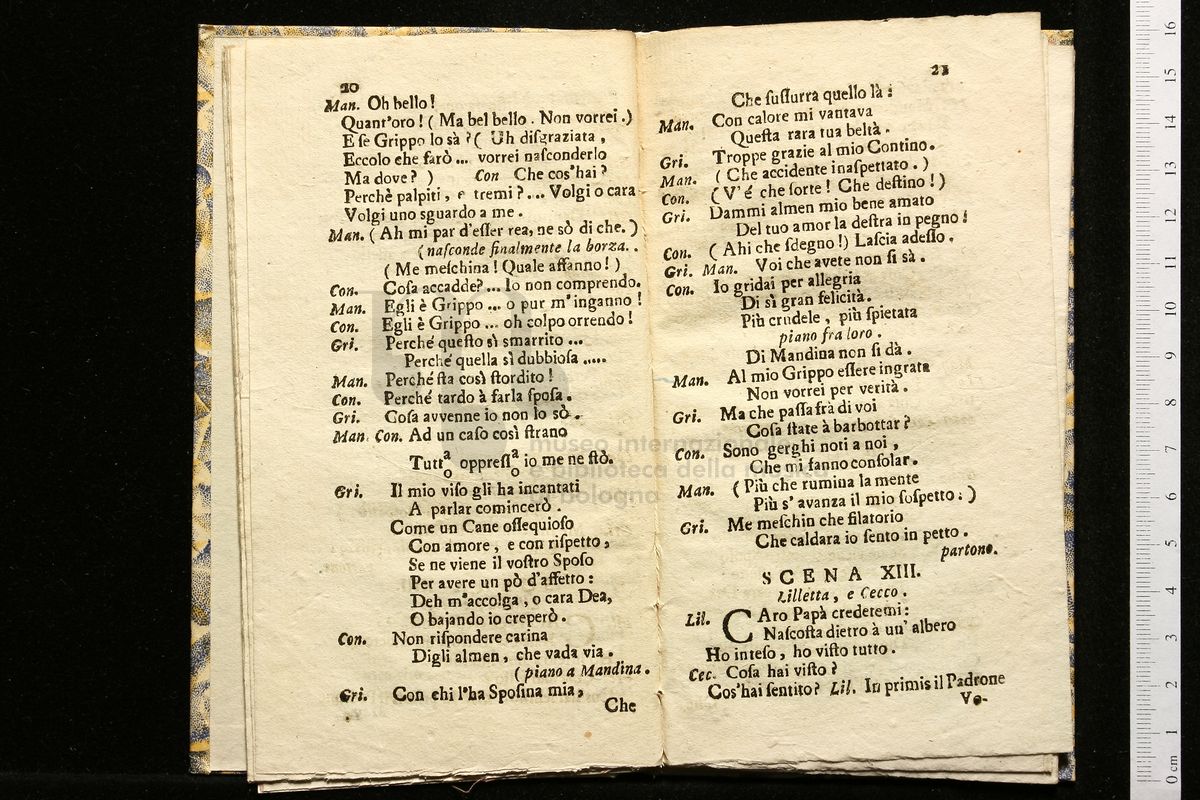 20
Man. Oh bello!
Quant'oro! ( Ma bel bello. Non vorrei.)
E se Grippo lo sà?( Uh disgraziata,
Eccolo che farò ... vorrei nasconderlo
Ma dove? ) Con Che cos'hai?
Perchè palpiti, e tremi?... Volgi o cara
Volgi uno sguardo a me.
Man. ( Ah mi par d'esser rea, ne sò di che. )
(nasconde finalmente la borza. .
( Me meschina! Quale affanno! )
Con. Cosa accadde?... Io non comprendo.
Man. Egli è Grippo ... o pur m'inganno!
Con. Egli è Grippo ... oh colpo orrendo!
Gri. Perché questo sì smarrito ...
Perché quella sì dubbiosa .....
Man. Perché sta così stordito!
Con. Perché tardo à farla sposa.
Gri. Cosa avvenne io non lo sò.
Man. Con. Ad un caso così strano
Tutt a/o oppress a/o io me ne stò.
Gri. Il mio viso gli ha incantati
A parlar comincerò.
Come un Cane ossequioso
Con amore, e con rispetto,
Se ne viene il vostro Sposo
Per avere un pò d'affetto:
Deh m'accolga, o cara Dea,
O bajando io creperò.
Con. Non rispondere carina
Digli almen, che vada via.
(piano a Mandina.
Gri. Con chi l'ha Sposina mia,
Che
21
Che susurra quello là:
Man. Con calore mi vantava
Questa rara tua beltà.
Gri. Troppe grazie al mio Contino.
Man. ( Che accidente inaspettato. )
Con. ( V'é che sorte! Che destino! )
Gri. Dammi almen mio bene amato
Del tuo amor la destra in pegno!
Con. ( Ahi che sdegno!) Lascia adesso.
Gri. Man. Voi che avete non si sà.
Con. Io gridai per allegria
Di sì gran felicità.
Più crudele, più spietata
piano fra loro.
Di Mandina non si dà.
Man. Al mio Grippo essere ingrata
Non vorrei per verità.
Gri. Ma che passa frà di voi
Cosa state à barbottar?
Con. Sono gerghi noti a noi,
Che mi fanno consolar.
Man. ( Più che rumina la mente
Più s'avanza il mio sospetto: )
Gri. Me meschin che filatorio
Che caldara io sento in petto.
partono.
SCENA XIII.
Lilletta, e Cecco.
Lil. CAro Papà crederemi:
Nascosta dietro à un' albero
Ho inteso, ho visto tutto.
Cec. Cosa hai visto?
Cos'hai sentito? Lil. In primis il Padrone
Ve-
museo internazionale
e biblioteca della musica
di bologna
0 cm 1 2 3 4 5 6 7 8 9 10 11 12 13 14 15 16